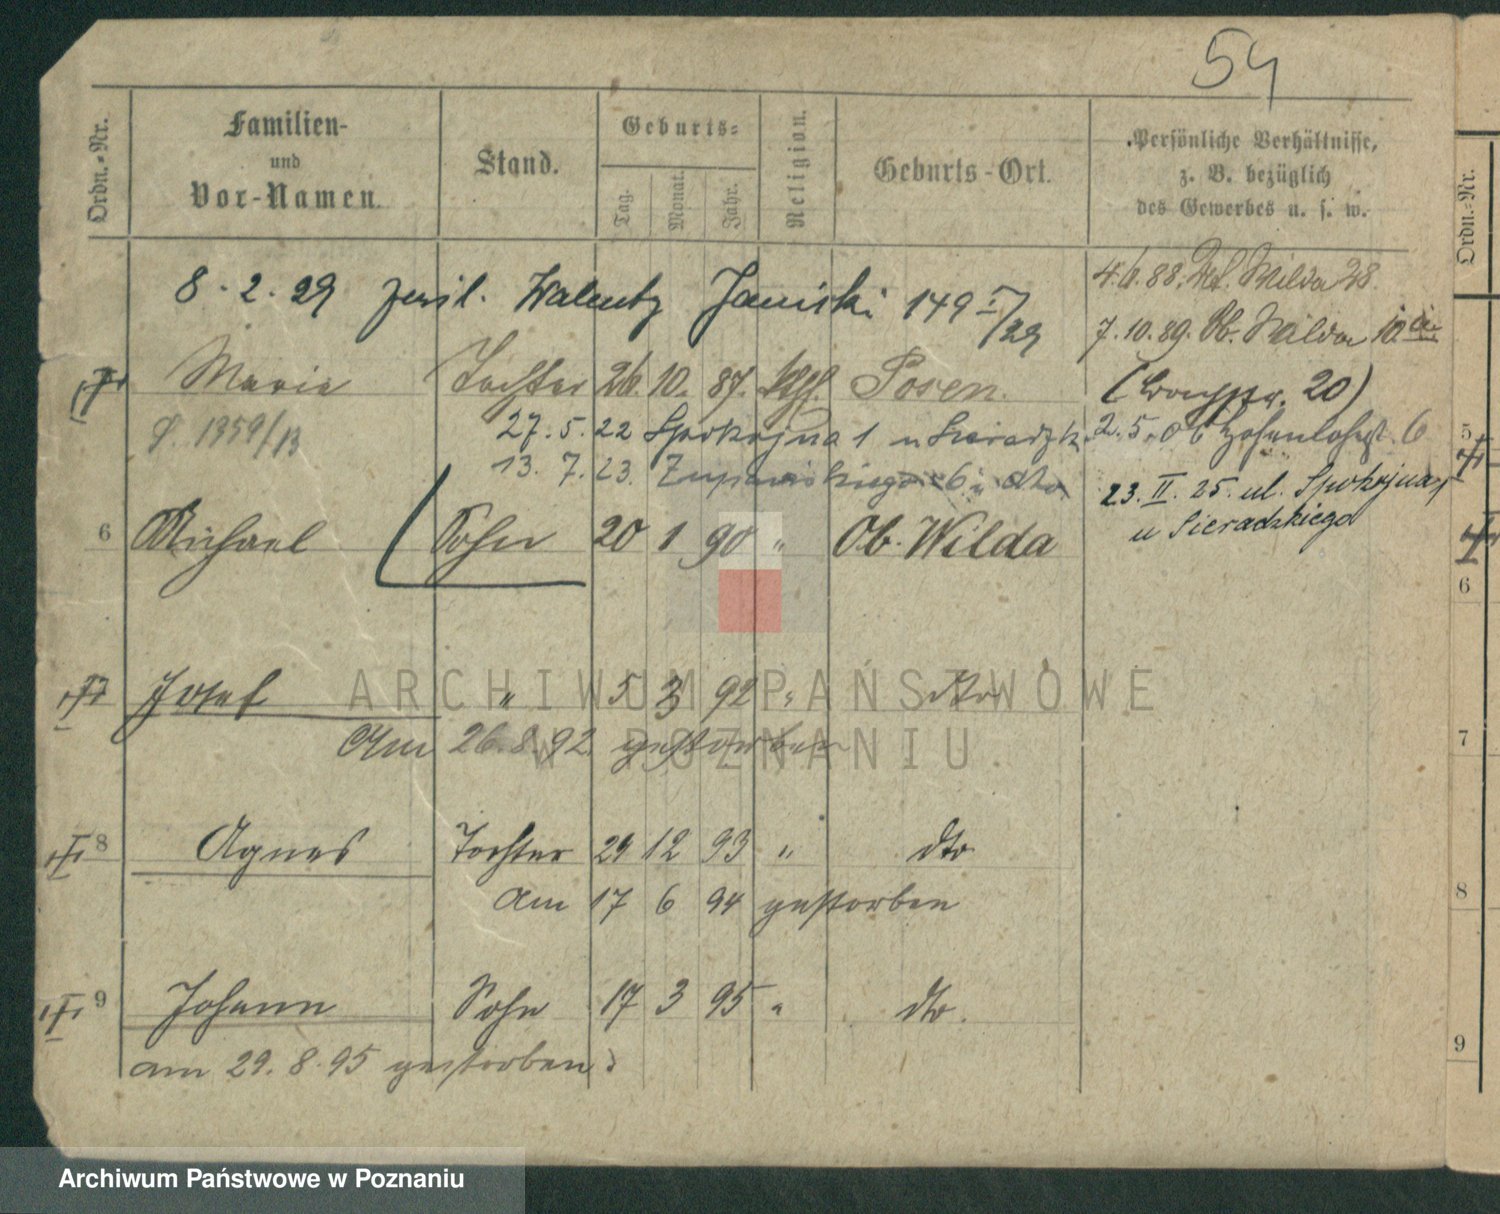 54
Ordn.-Nr.
Familien-
und
Vor-Namen.
Stand.
Geburts-
Tag.
Monat.
Jahr.
Religion.
Geburts-Ort.
Persönliche Verhältnisse,
z. B. bezüglich
des Gewerbes u. s. w.
Ordn.-Nr.
8. 2. 29 Walenty Janiski 149 I/29
4. 6. 88. Wilda 28.
7. 10. 89. Ob. Wilda 10
Marie Tochter 26. 10. 87. kth. Posen.
20)
1959/13
27. 5. 22 Spokojna 1 u Sieradzk.
2. 5. 06 Hohenlohest. 6
13. 7. 23. 6 dto
23. II. 25. ul. Spokojna 1
u Sieradzkiego
6 Michael Sohn 20 1 90 " Ob. Wilda
7 Josef " 5 3 92 " dto
Am 26. 8. 92 gestorben
8 Agnes Tochter 29 12 93 " dto
am 17 6 94 gestorben
9 Johann Sohn 17 3 95 " dto.
am 29. 8. 95 gestorben
5
6
7
8
9
ARCHIWUM PAŃSTWOWE
W POZNANIU
Archiwum Państwowe w Poznaniu